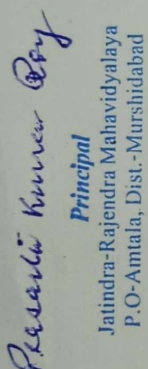 Prasanta Kumar Roy
Principal
Jatindra-Rajendra Mahavidyalaya
P.O-Amtala, Dist.-Murshidabad